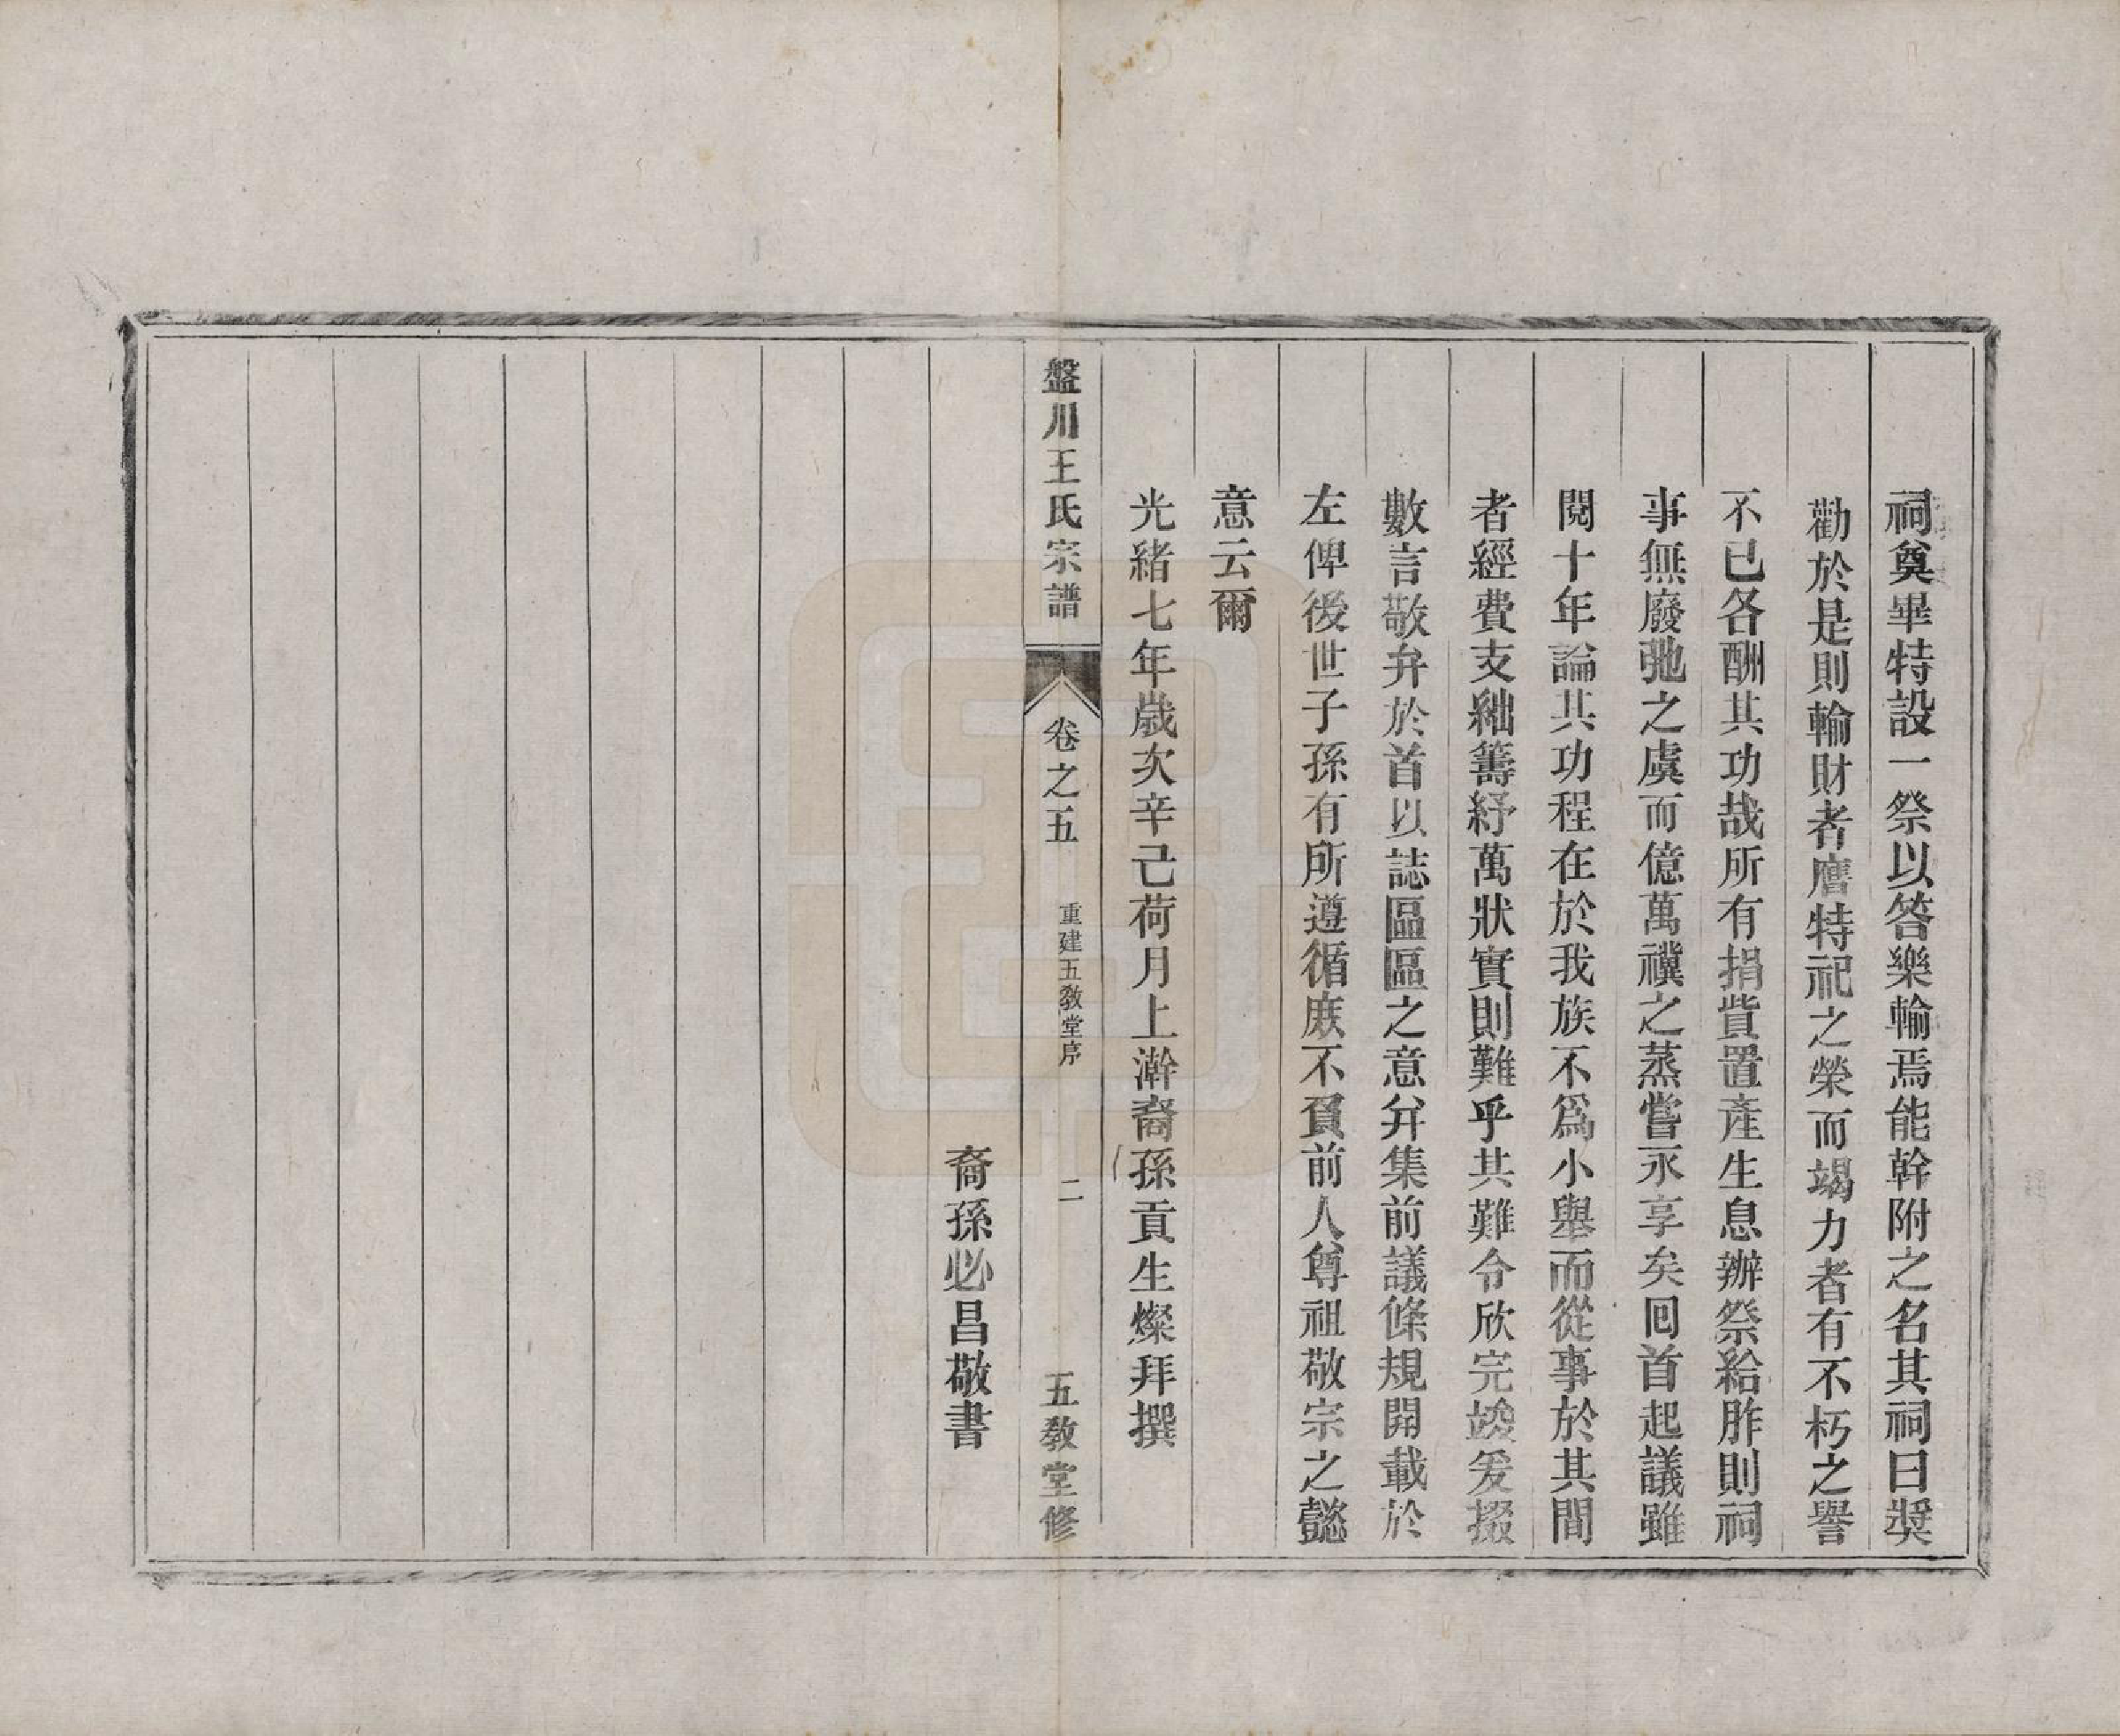 祠奠畢特設一祭以答樂輸焉能幹附之名其祠曰奬
勸於是則輸財者膺特祀之榮而竭力者有不朽之譽
不已各酬其功哉所有捐貲置產生息辦祭給胙則祠
事無廢弛之虞而億萬禩之蒸嘗永享矣囘首起議雖
閱十年論其功程在於我族不爲小舉而從事於其間
者經費支絀籌紓萬狀實則難乎其難令欣完竣爰掇
數言敬弁於首以誌區區之意幷集前議條規開載於
左俾後世子孫有所遵循庶不負前人尊祖敬宗之懿
意云爾
光緒七年歲次辛己荷月上澣裔孫貢生燦拜撰
盤川王氏宗譜 卷之五 重建五敎堂序 二 五敎堂修
裔孫必昌敬書